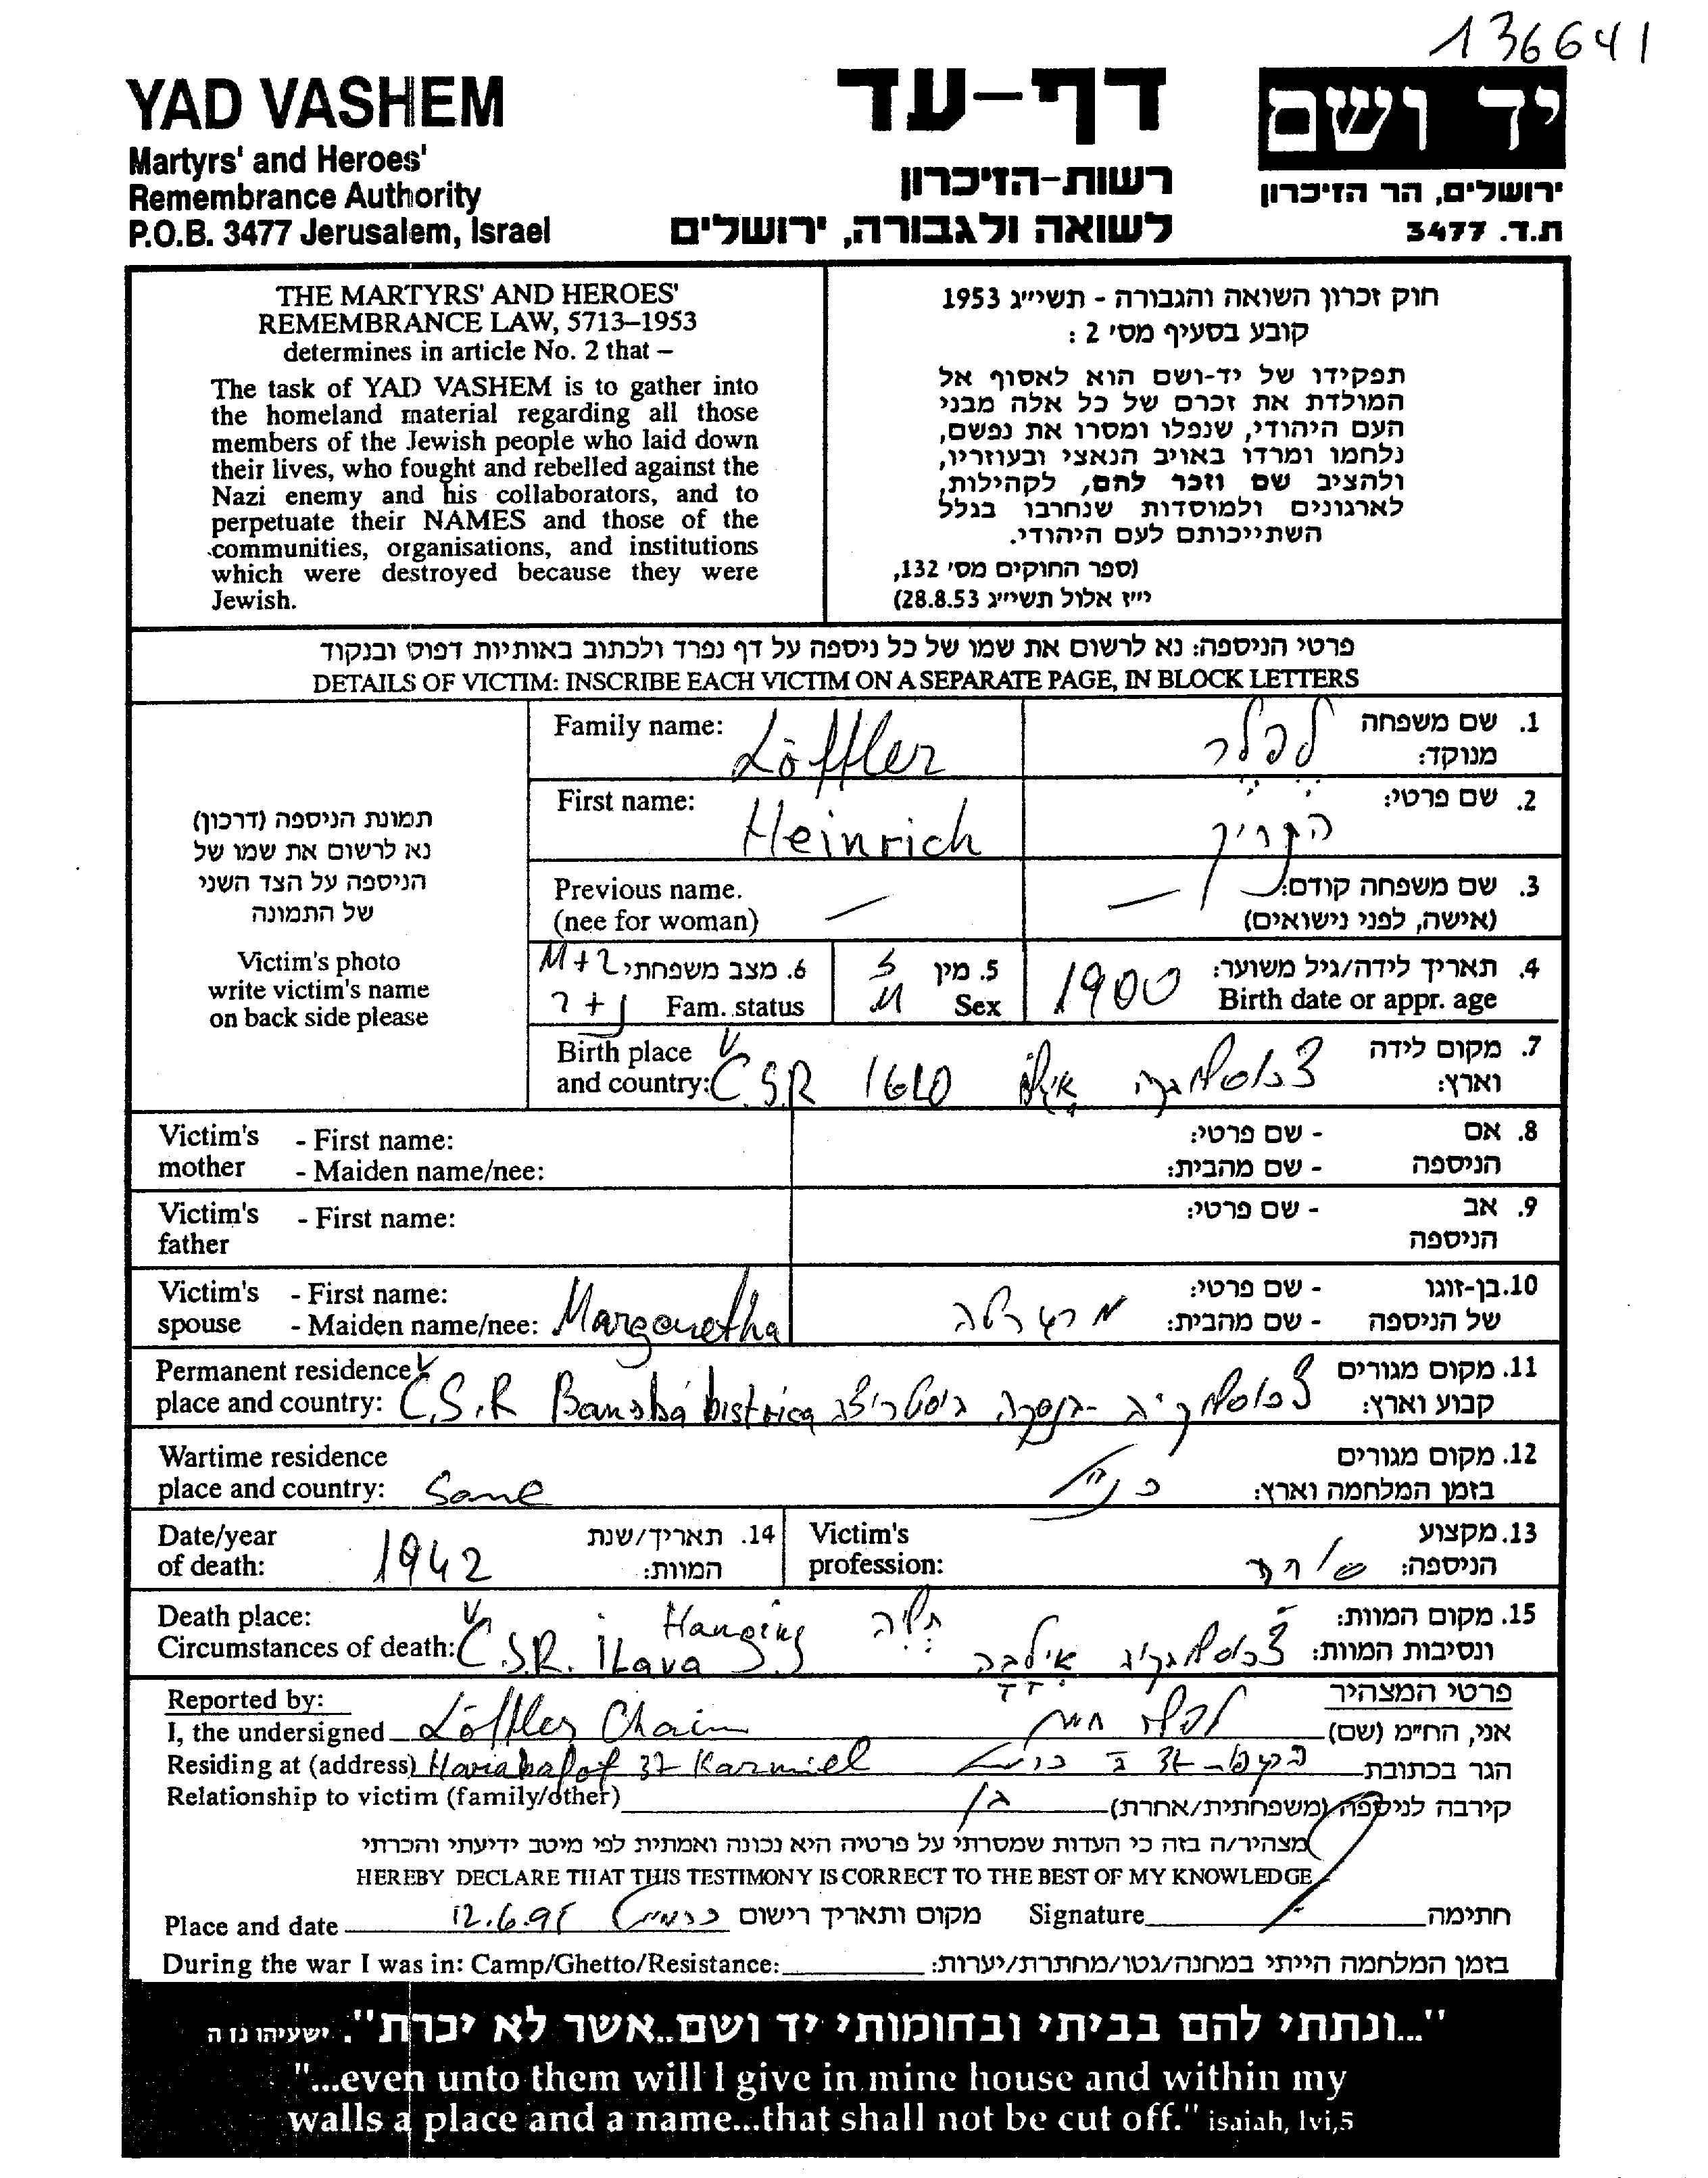 136641
YAD VASHEM
Martyrs' and Heroes'
Remembrance Authority
P.O.B. 3477 Jerusalem, Israel
דף-עד
רשות-הזיכרון
לשואה ולגבורה, ירושלים
יד ושם
ירושלים, הר הזיכרון
ת.ד. 3477
THE MARTYRS' AND HEROES'
REMEMBRANCE LAW, 5713–1953
determines in article No. 2 that –
The task of YAD VASHEM is to gather into
the homeland material regarding all those
members of the Jewish people who laid down
their lives, who fought and rebelled against the
Nazi enemy and his collaborators, and to
perpetuate their NAMES and those of the
communities, organisations, and institutions
which were destroyed because they were
Jewish.
חוק זכרון השואה והגבורה - תשי״ג 1953
קובע בסעיף מס' 2 :
תפקידו של יד-ושם הוא לאסוף אל
המולדת את זכרם של כל אלה מבני
העם היהודי, שנפלו ומסרו את נפשם,
נלחמו ומרדו באויב הנאצי ובעוזריו,
ולהציב שם וזכר להם, לקהילות,
לארגונים ולמוסדות שנחרבו בגלל
השתייכותם לעם היהודי.
(ספר החוקים מס' 132,
י״ז אלול תשי״ג 28.8.53)
פרטי הניספה: נא לרשום את שמו של כל ניספה על דף נפרד ולכתוב באותיות דפוס ובנקוד
DETAILS OF VICTIM: INSCRIBE EACH VICTIM ON A SEPARATE PAGE, IN BLOCK LETTERS
תמונת הניספה (דרכון)
נא לרשום את שמו של
הניספה על הצד השני
של התמונה
Victim's photo
write victim's name
on back side please
Family name: Löffler לפלר 1. שם משפחה
מנוקד:
First name: Heinrich הנריך 2. שם פרטי:
Previous name. — — 3. שם משפחה קודם:
(nee for woman) (אישה, לפני נישואים)
M+2 6. מצב משפחתי 5. מין 1900 4. תאריך לידה/גיל משוער:
2+נ Fam. status M Sex Birth date or appr. age
Birth place 7. מקום לידה
and country: Č.S.R צ'כוסלובקיה וארץ:
Victim's - First name: - שם פרטי: 8. אם
mother - Maiden name/nee: - שם מהבית: הניספה
Victim's - First name: - שם פרטי: 9. אב
father הניספה
Victim's - First name: - שם פרטי: 10. בן-זוגו
spouse - Maiden name/nee: Margaretha - שם מהבית: של הניספה
Permanent residence 11. מקום מגורים
place and country: Č.S.R Banská bistrica צ'כוסלובקיה - בנסקה ביסטריצה קבוע וארץ:
Wartime residence 12. מקום מגורים
place and country: Same כנ"ל בזמן המלחמה וארץ:
Date/year 1942 14. תאריך/שנת Victim's 13. מקצוע
of death: המוות: profession: הניספה:
Death place: Hanging תליה 15. מקום המוות:
Circumstances of death: Č.S.R. iLava צ'כוסלובקיה אילבה ונסיבות המוות:
Reported by: פרטי המצהיר
I, the undersigned Löffler Chaim לפלר חיים אני, הח״מ (שם)
Residing at (address) 37 Karmiel 37 כרמיאל הגר בכתובת
Relationship to victim (family/other) בן קירבה לניספה (משפחתית/אחרת)
מצהיר/ה בזה כי העדות שמסרתי על פרטיה היא נכונה ואמתית לפי מיטב ידיעתי והכרתי
HEREBY DECLARE THAT THIS TESTIMONY IS CORRECT TO THE BEST OF MY KNOWLEDGE
Place and date 12.6.95 כרמיאל מקום ותאריך רישום Signature חתימה
During the war I was in: Camp/Ghetto/Resistance: בזמן המלחמה הייתי במחנה/גטו/מחתרת/יערות:
"...ונתתי להם בביתי ובחומותי יד ושם..אשר לא יכרת". ישעיהו נז ה
"...even unto them will I give in mine house and within my
walls a place and a name...that shall not be cut off." isaiah, lvi,5